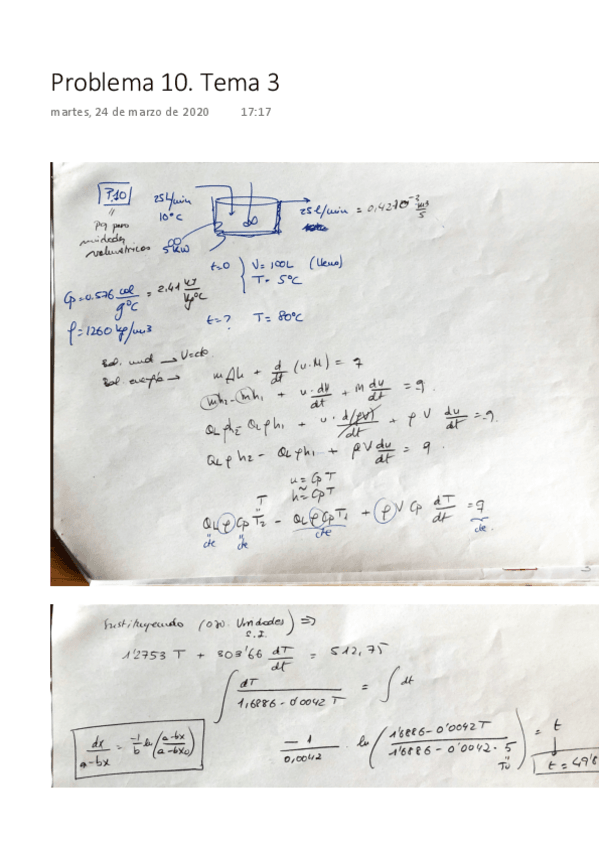 Problema 10. Tema 3
martes, 24 de marzo de 2020 17:17
P.10
25 L/min
10°C
5 kW
25 L/min = 0,42·10⁻³ m³/s
volumétricos
t=0 V = 100L (lleno)
T = 5°C
Cp = 0.576 cal/g°C = 2.41 kJ/kg°C
ρ = 1260 kg/m³
t = ? T = 80°C
Bal. → V = cte
Bal. energía →
m Δh + d/dt (u·M) = q
mh₂ - mh₁ + u·dM/dt + M du/dt = q
QL ρh₂ - QL ρh₁ + u·d(ρV)/dt + ρV du/dt = q
QL ρ h₂ - QL ρh₁ + ρV du/dt = q
u = Cp T
h ≈ Cp T
T
QL ρ Cp T₂ - QL ρ Cp T₁ + ρ V Cp dT/dt = q
cte cte cte cte
Sustituyendo (ojo. Unidades) ⇒
S.I.
1'2753 T + 303'66 dT/dt = 512,75
∫ dT/(1,6886 - 0'0042 T) = ∫ dt
dx/(a-bx) = -1/b ln (a-bx/a-bx₀)
-1/0,0042 · ln (1'6886 - 0'0042 T / 1'6886 - 0'0042 · 5) = t
T₀
t = 49'8